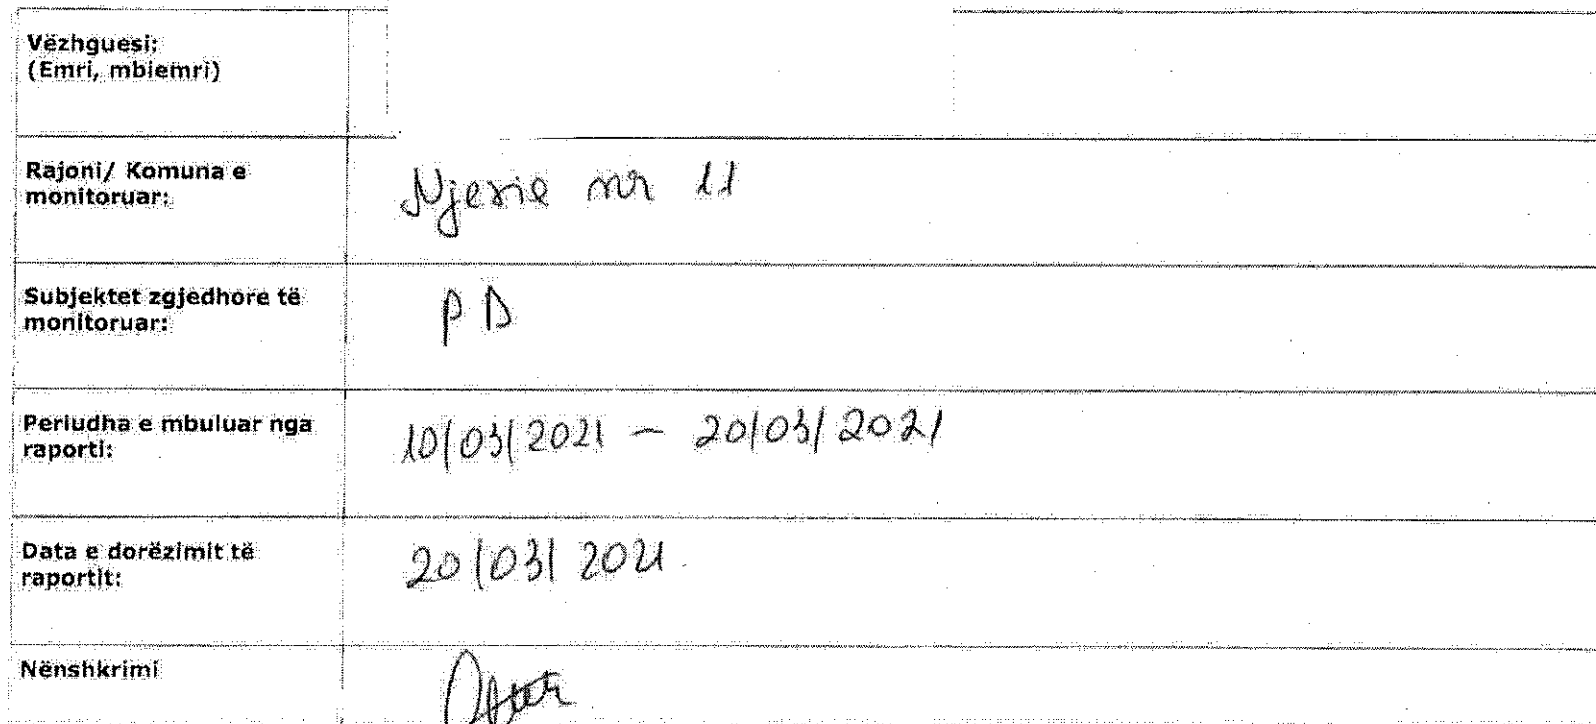 Vëzhguesi:
(Emri, mbiemri)
Rajoni/ Komuna e
monitoruar:
Njesia nr 11
Subjektet zgjedhore të
monitoruar:
PD
Periudha e mbuluar nga
raporti:
10/03/2021 - 20/03/2021
Data e dorëzimit të
raportit:
20/03/2021
Nënshkrimi